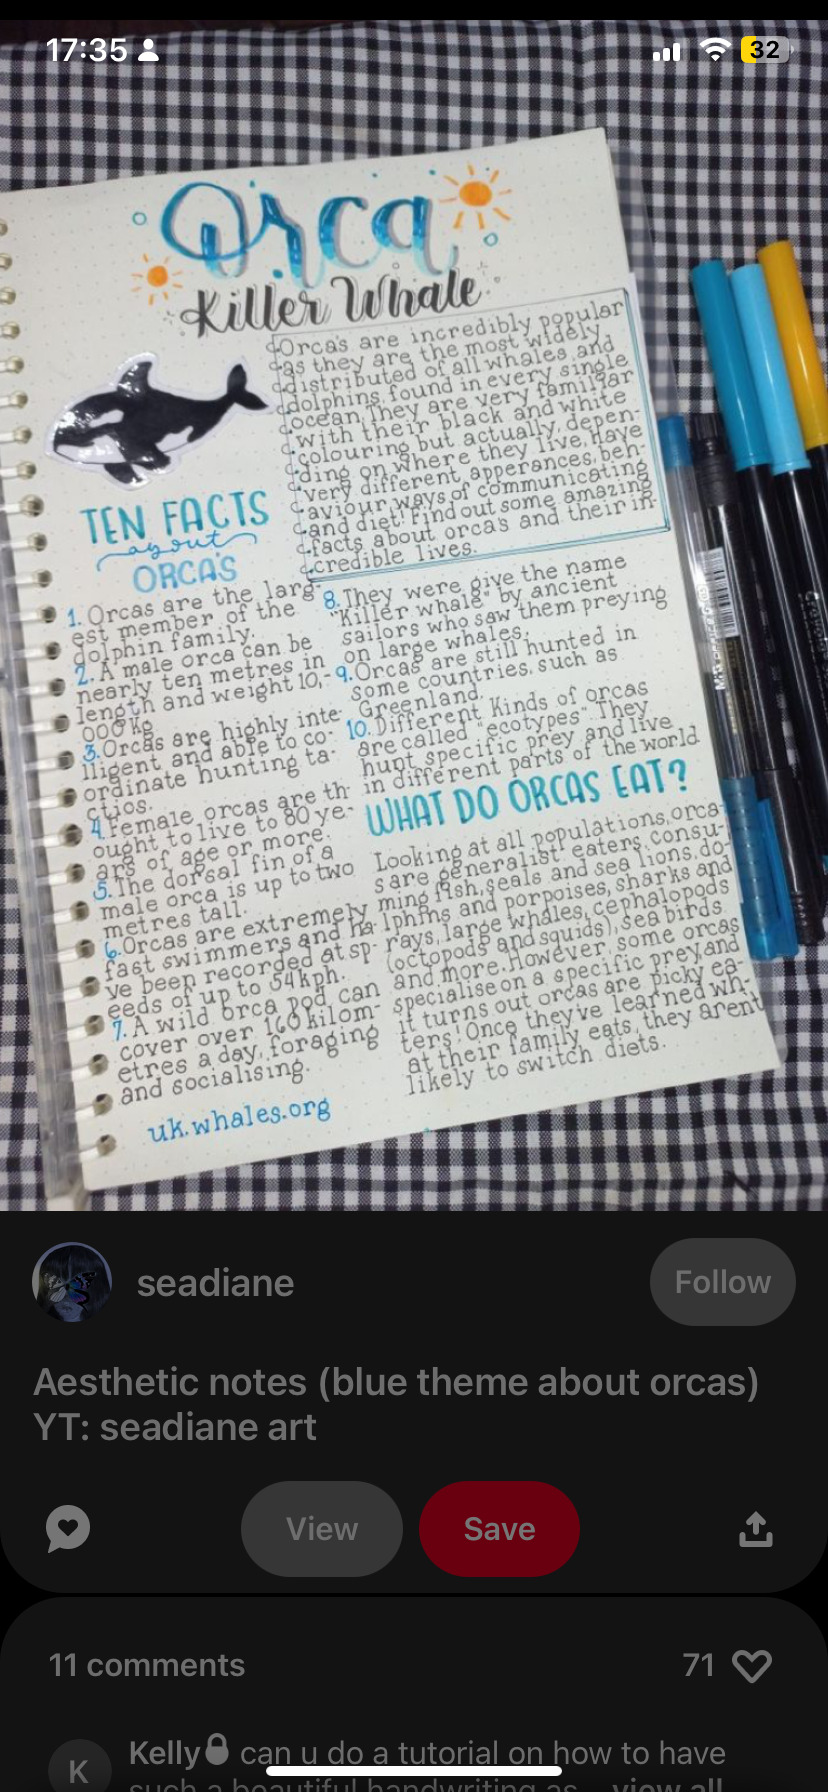 17:35
32
Orca
Killer Whale
Orca's are incredibly popular
as they are the most widely
distributed of all whales and
dolphins, found in every single
ocean. They are very familiar
with their black and white
colouring but actually, depen-
ding on where they live, have
very different apperances, beh-
aviour, ways of communicating
and diet! Find out some amazing
facts about orca's and their in-
credible lives.
TEN FACTS
about
ORCA'S
1. Orcas are the larg-
est member of the
dolphin family.
2. A male orca can be
nearly ten metres in
length and weight 10,-
000 kg
3. Orcas are highly inte-
lligent and able to co-
ordinate hunting ta-
ctios.
4. Female orcas are th-
ought to live to 80 ye-
ars of age or more.
5. The dorsal fin of a
male orca is up to two
metres tall.
6. Orcas are extremely
fast swimmers and ha-
ve been recorded at sp-
eeds of up to 54kph.
7. A wild orca pod can
cover over 160 kilom-
etres a day, foraging
and socialising.
uk.whales.org
8. They were give the name
"Killer whale" by ancient
sailors who saw them preying
on large whales.
9. Orcas are still hunted in
some countries, such as
Greenland.
10. Different Kinds of orcas
are called "ecotypes". They
hunt specific prey and live
in different parts of the world
WHAT DO ORCAS EAT?
Looking at all populations, orca-
s are generalist eaters, consu-
ming fish, seals and sea lions, do-
lphins and porpoises, sharks and
rays, large whales, cephalopods
(octopods and squids), sea birds
and more. However, some orcas
specialise on a specific prey and
it turns out orcas are picky ea-
ters! Once they've learned wh-
at their family eats, they arent
likely to switch diets.
seadiane
Follow
Aesthetic notes (blue theme about orcas)
YT: seadiane art
View
Save
11 comments
71
K
Kelly can u do a tutorial on how to have
such a beautiful handwriting as... view all